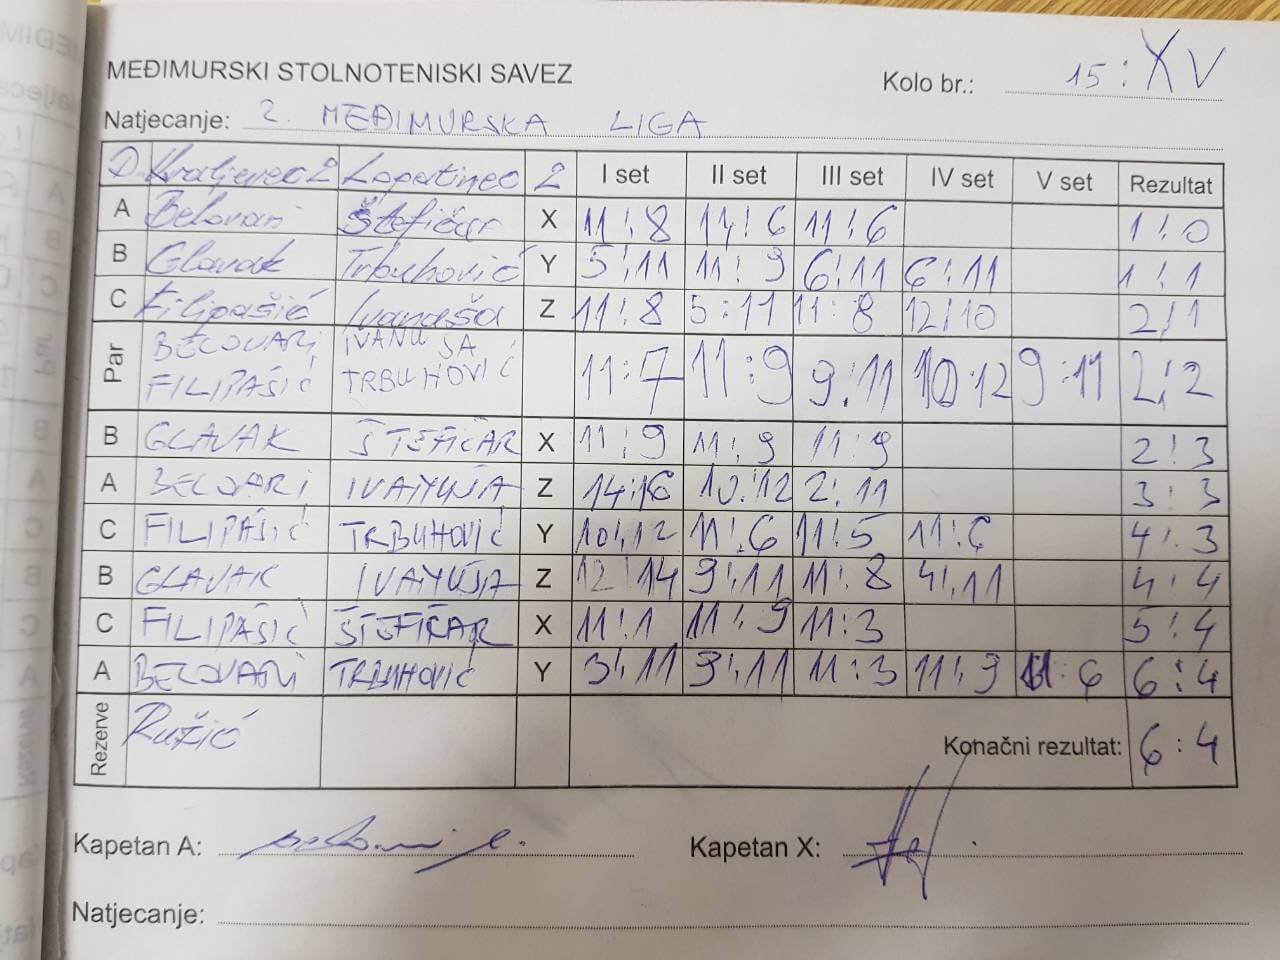 MEĐIMURSKI STOLNOTENISKI SAVEZ
Kolo br.: 15. XV
Natjecanje: 2. MEĐIMURSKA LIGA
D. Kraljevec 2 Lopatinec 2 I set II set III set IV set V set Rezultat
A Belovari Štefičar X 11:8 11:6 11:6 1:0
B Glavak Trbuhović Y 5:11 11:9 6:11 6:11 1:1
C Filipašić Ivanuša Z 11:8 5:11 11:8 12/10 2/1
Par BELOVARI IVANUŠA
FILIPAŠIĆ TRBUHOVIĆ 11:7 11:9 9:11 10:12 9:11 2:2
B GLAVAK ŠTEFIČAR X 11:9 11:9 11:9 2:3
A BELOVARI IVANUŠA Z 14:16 10:12 2:11 3:3
C FILIPAŠIĆ TRBUHOVIĆ Y 10:12 11:6 11:5 11:6 4:3
B GLAVAK IVANUŠA Z 12:14 9:11 11:8 4:11 4:4
C FILIPAŠIĆ ŠTEFIČAR X 11:1 11:9 11:3 5:4
A BELOVARI TRBUHOVIĆ Y 3:11 9:11 11:3 11:9 11:6 6:4
Rezerve Ružić Konačni rezultat: 6:4
Kapetan A:
Kapetan X:
Natjecanje: